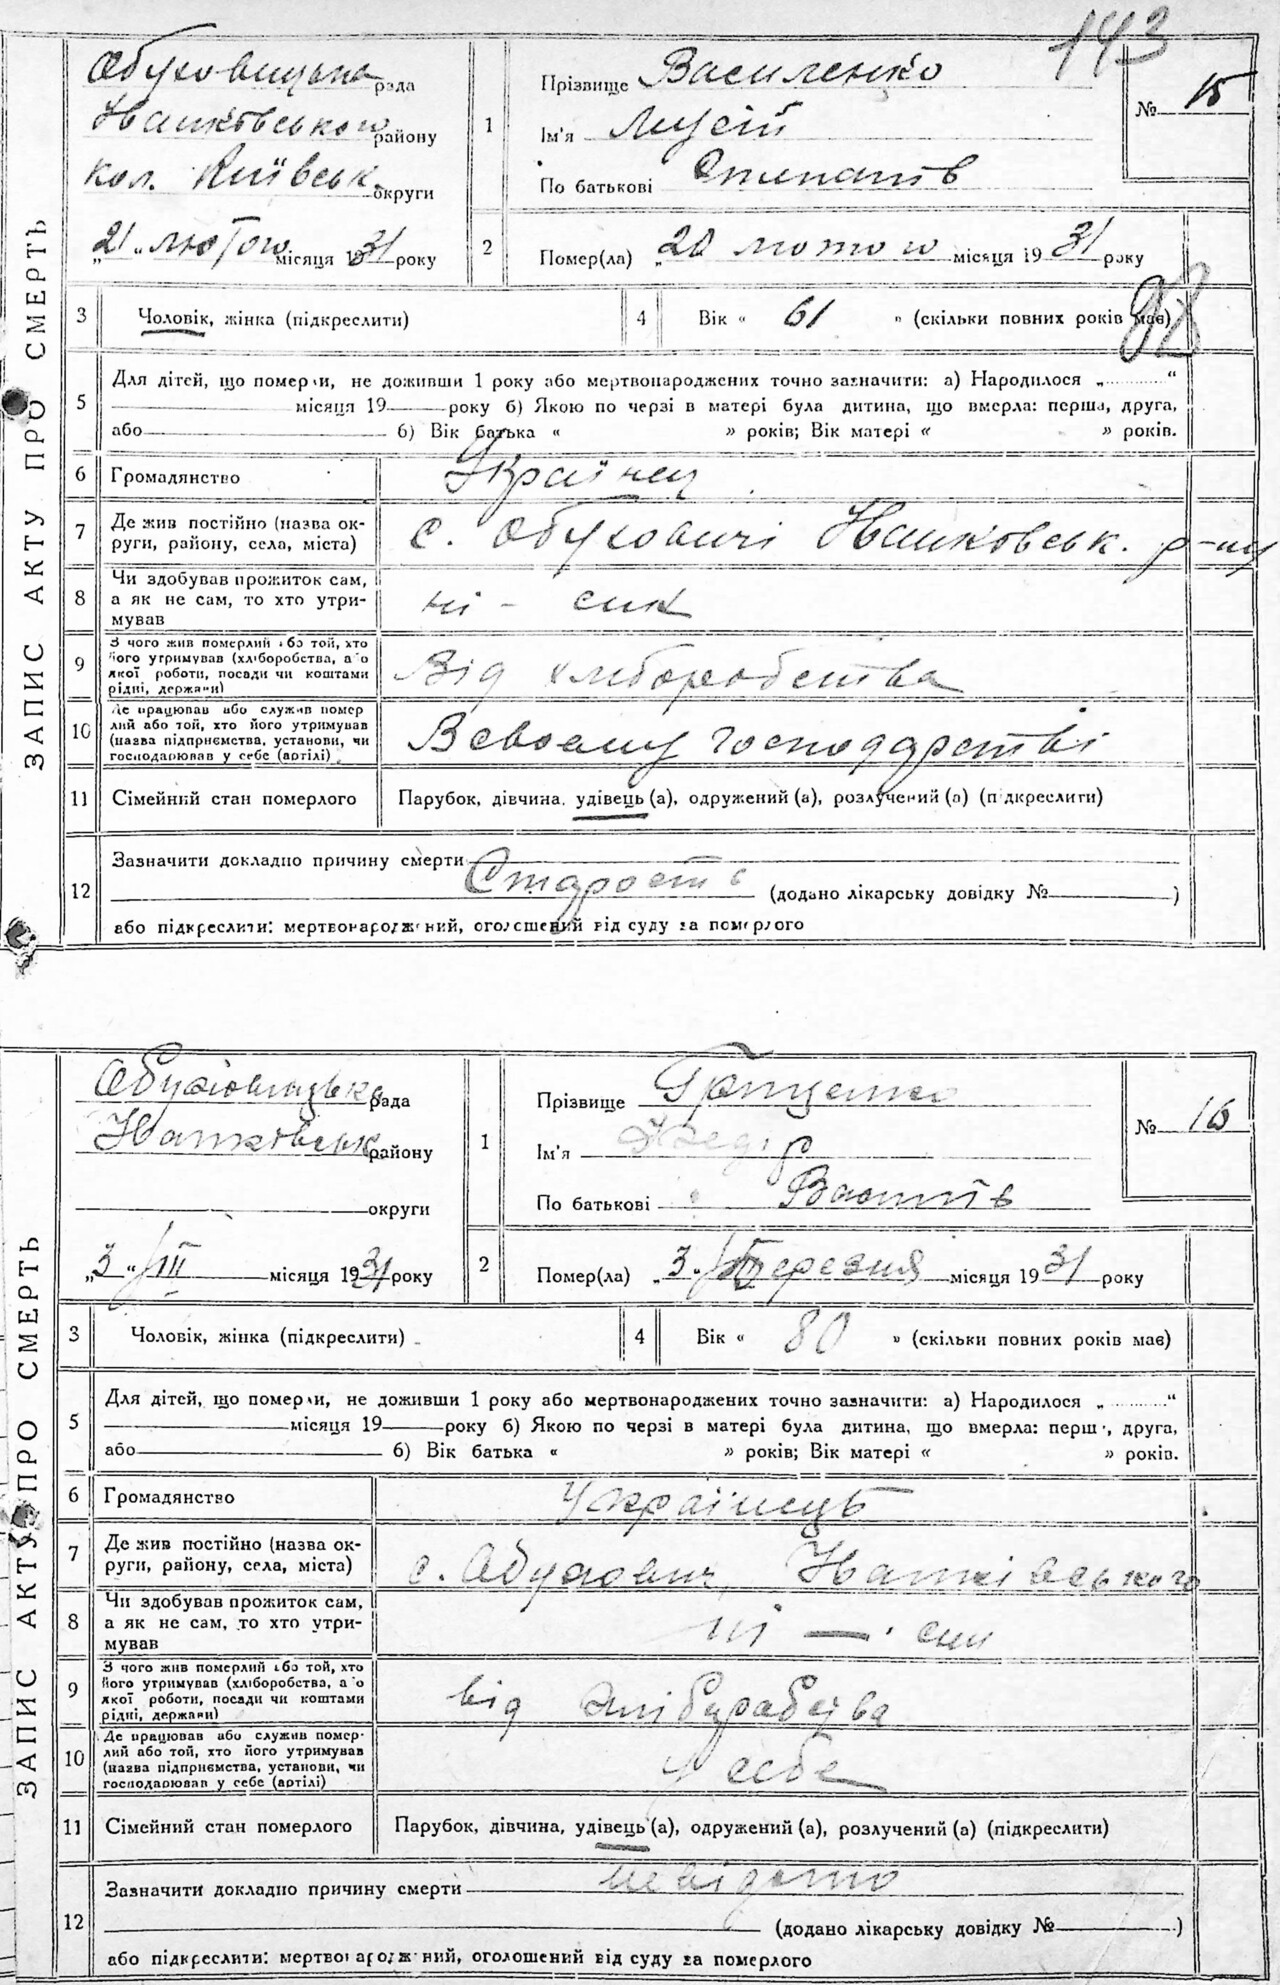 143
ЗАПИС АКТУ ПРО СМЕРТЬ
Обуховицька рада
Іванковського району
кол. Київськ. округи
„21“ лютого місяця 1931 року
1
Прізвище Василенко
Ім'я Мусій
По батькові
№ 15
2
Помер(ла) „20 лютого місяця 1931 року
3
Чоловік, жінка (підкреслити)
4
Вік « 61 » (скільки повних років має)
5
Для дітей, що померли, не доживши 1 року або мертвонароджених точно зазначити: а) Народилося „ “
місяця 19 року б) Якою по черзі в матері була дитина, що вмерла: перша, друга,
або б) Вік батька « » років; Вік матері « » років.
6
Громадянство
Українец
7
Де жив постійно (назва ок-
руги, району, села, міста)
с. Обуховичі Іванковськ. р-ну
8
Чи здобував прожиток сам,
а як не сам, то хто утри-
мував
ні - син
9
З чого жив померлий або той, хто
його утримував (хліборобства, або
якої роботи, посади чи коштами
рідні, держави)
Від хліборобства
10
Де працював або служив помер
лий або той, хто його утримував
(назва підприємства, установи, чи
господарював у себе (артілі)
В своому господарстві
11
Сімейний стан померлого
Парубок, дівчина, удівець (а), одружений (а), розлучений (а) (підкреслити)
12
Зазначити докладно причину смерти
Старость (додано лікарську довідку № )
або підкреслити: мертвонароджений, оголошений від суду за померлого
ЗАПИС АКТУ ПРО СМЕРТЬ
Обуховицька рада
Іванковськ району
округи
„3“ III місяця 1931 року
1
Прізвище Грищенко
Ім'я
По батькові
№ 16
2
Помер(ла) „3. Березня місяця 1931 року
3
Чоловік, жінка (підкреслити)
4
Вік « 80 » (скільки повних років має)
5
Для дітей, що померли, не доживши 1 року або мертвонароджених точно зазначити: а) Народилося „ “
місяця 19 року б) Якою по черзі в матері була дитина, що вмерла: перша, друга,
або б) Вік батька « » років; Вік матері « » років.
6
Громадянство
Українець
7
Де жив постійно (назва ок-
руги, району, села, міста)
с. Обухович, Іванківського
8
Чи здобував прожиток сам,
а як не сам, то хто утри-
мував
ні — син
9
З чого жив померлий або той, хто
його утримував (хліборобства, або
якої роботи, посади чи коштами
рідні, держави)
від хліборабства
10
Де працював або служив помер-
лий або той, хто його утримував
(назва підприємства, установи, чи
господарював у себе (артілі)
У себе
11
Сімейний стан померлого
Парубок, дівчина, удівець (а), одружений (а), розлучений (а) (підкреслити)
12
Зазначити докладно причину смерти невідомо
(додано лікарську довідку № )
або підкреслити: мертвонароджений, оголошений від суду за померлого